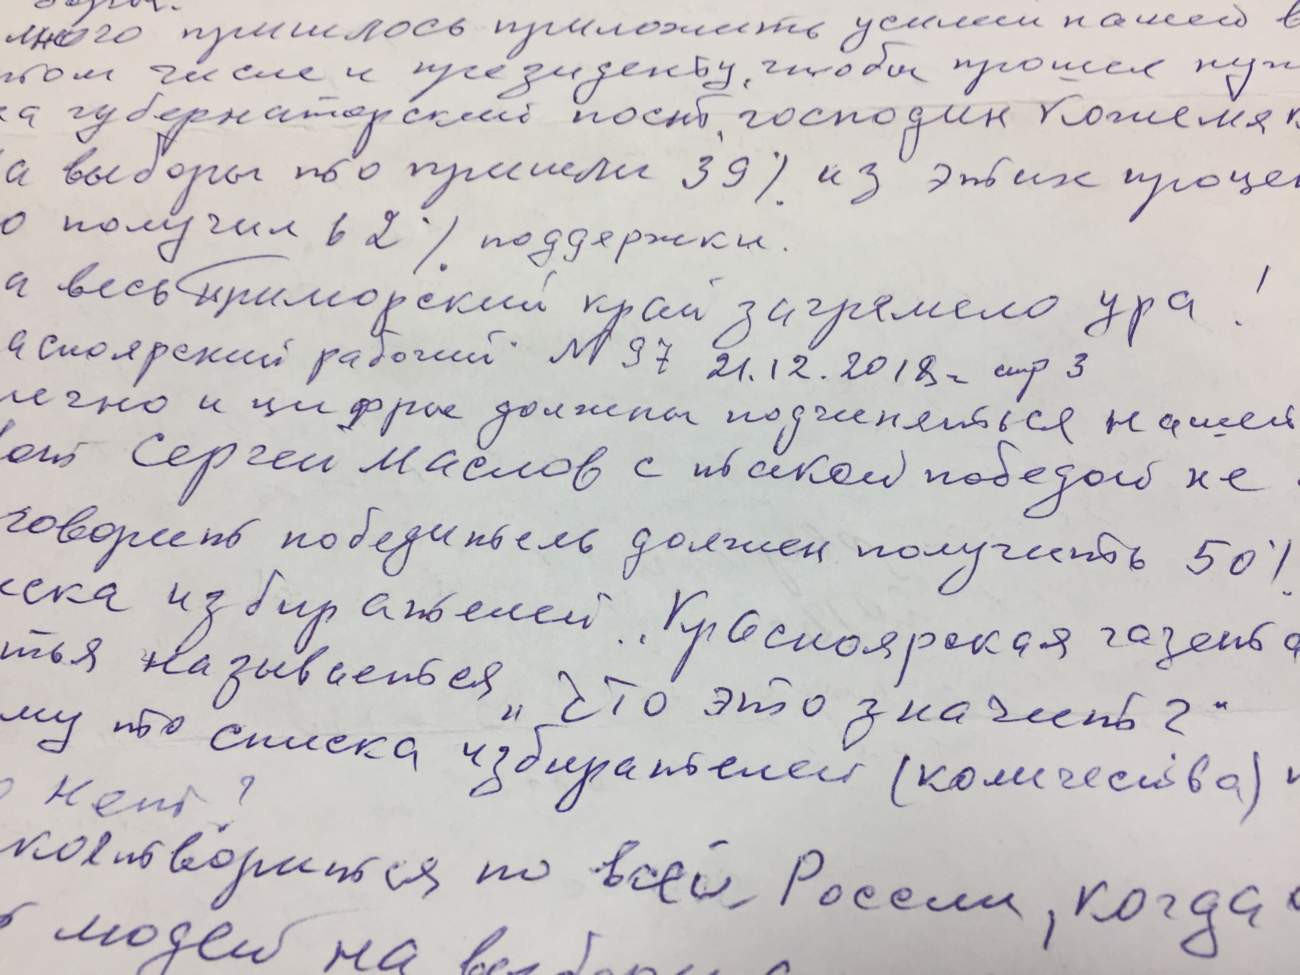 много пришлось приложить усилий нашей в
том числе и президенту, чтобы прошел нуж
на губернаторский пост, господин Кожемяк
На выборы то пришли 39% из этих процен
о получил 62% поддержки.
а весь приморский край загремело ура!
асноярский рабочий № 97 21.12.2018г стр 3
нечно и цифры должны подчиняться нашей
Вот Сергей Маслов с такой победой не
говорит победитель должен получить 50%
иска избирателей. "Красноярская газета
тья называется "Что это значит?"
му то списка избирателей (количества)
о нет?
творится по всей России, когда
людей на выборы